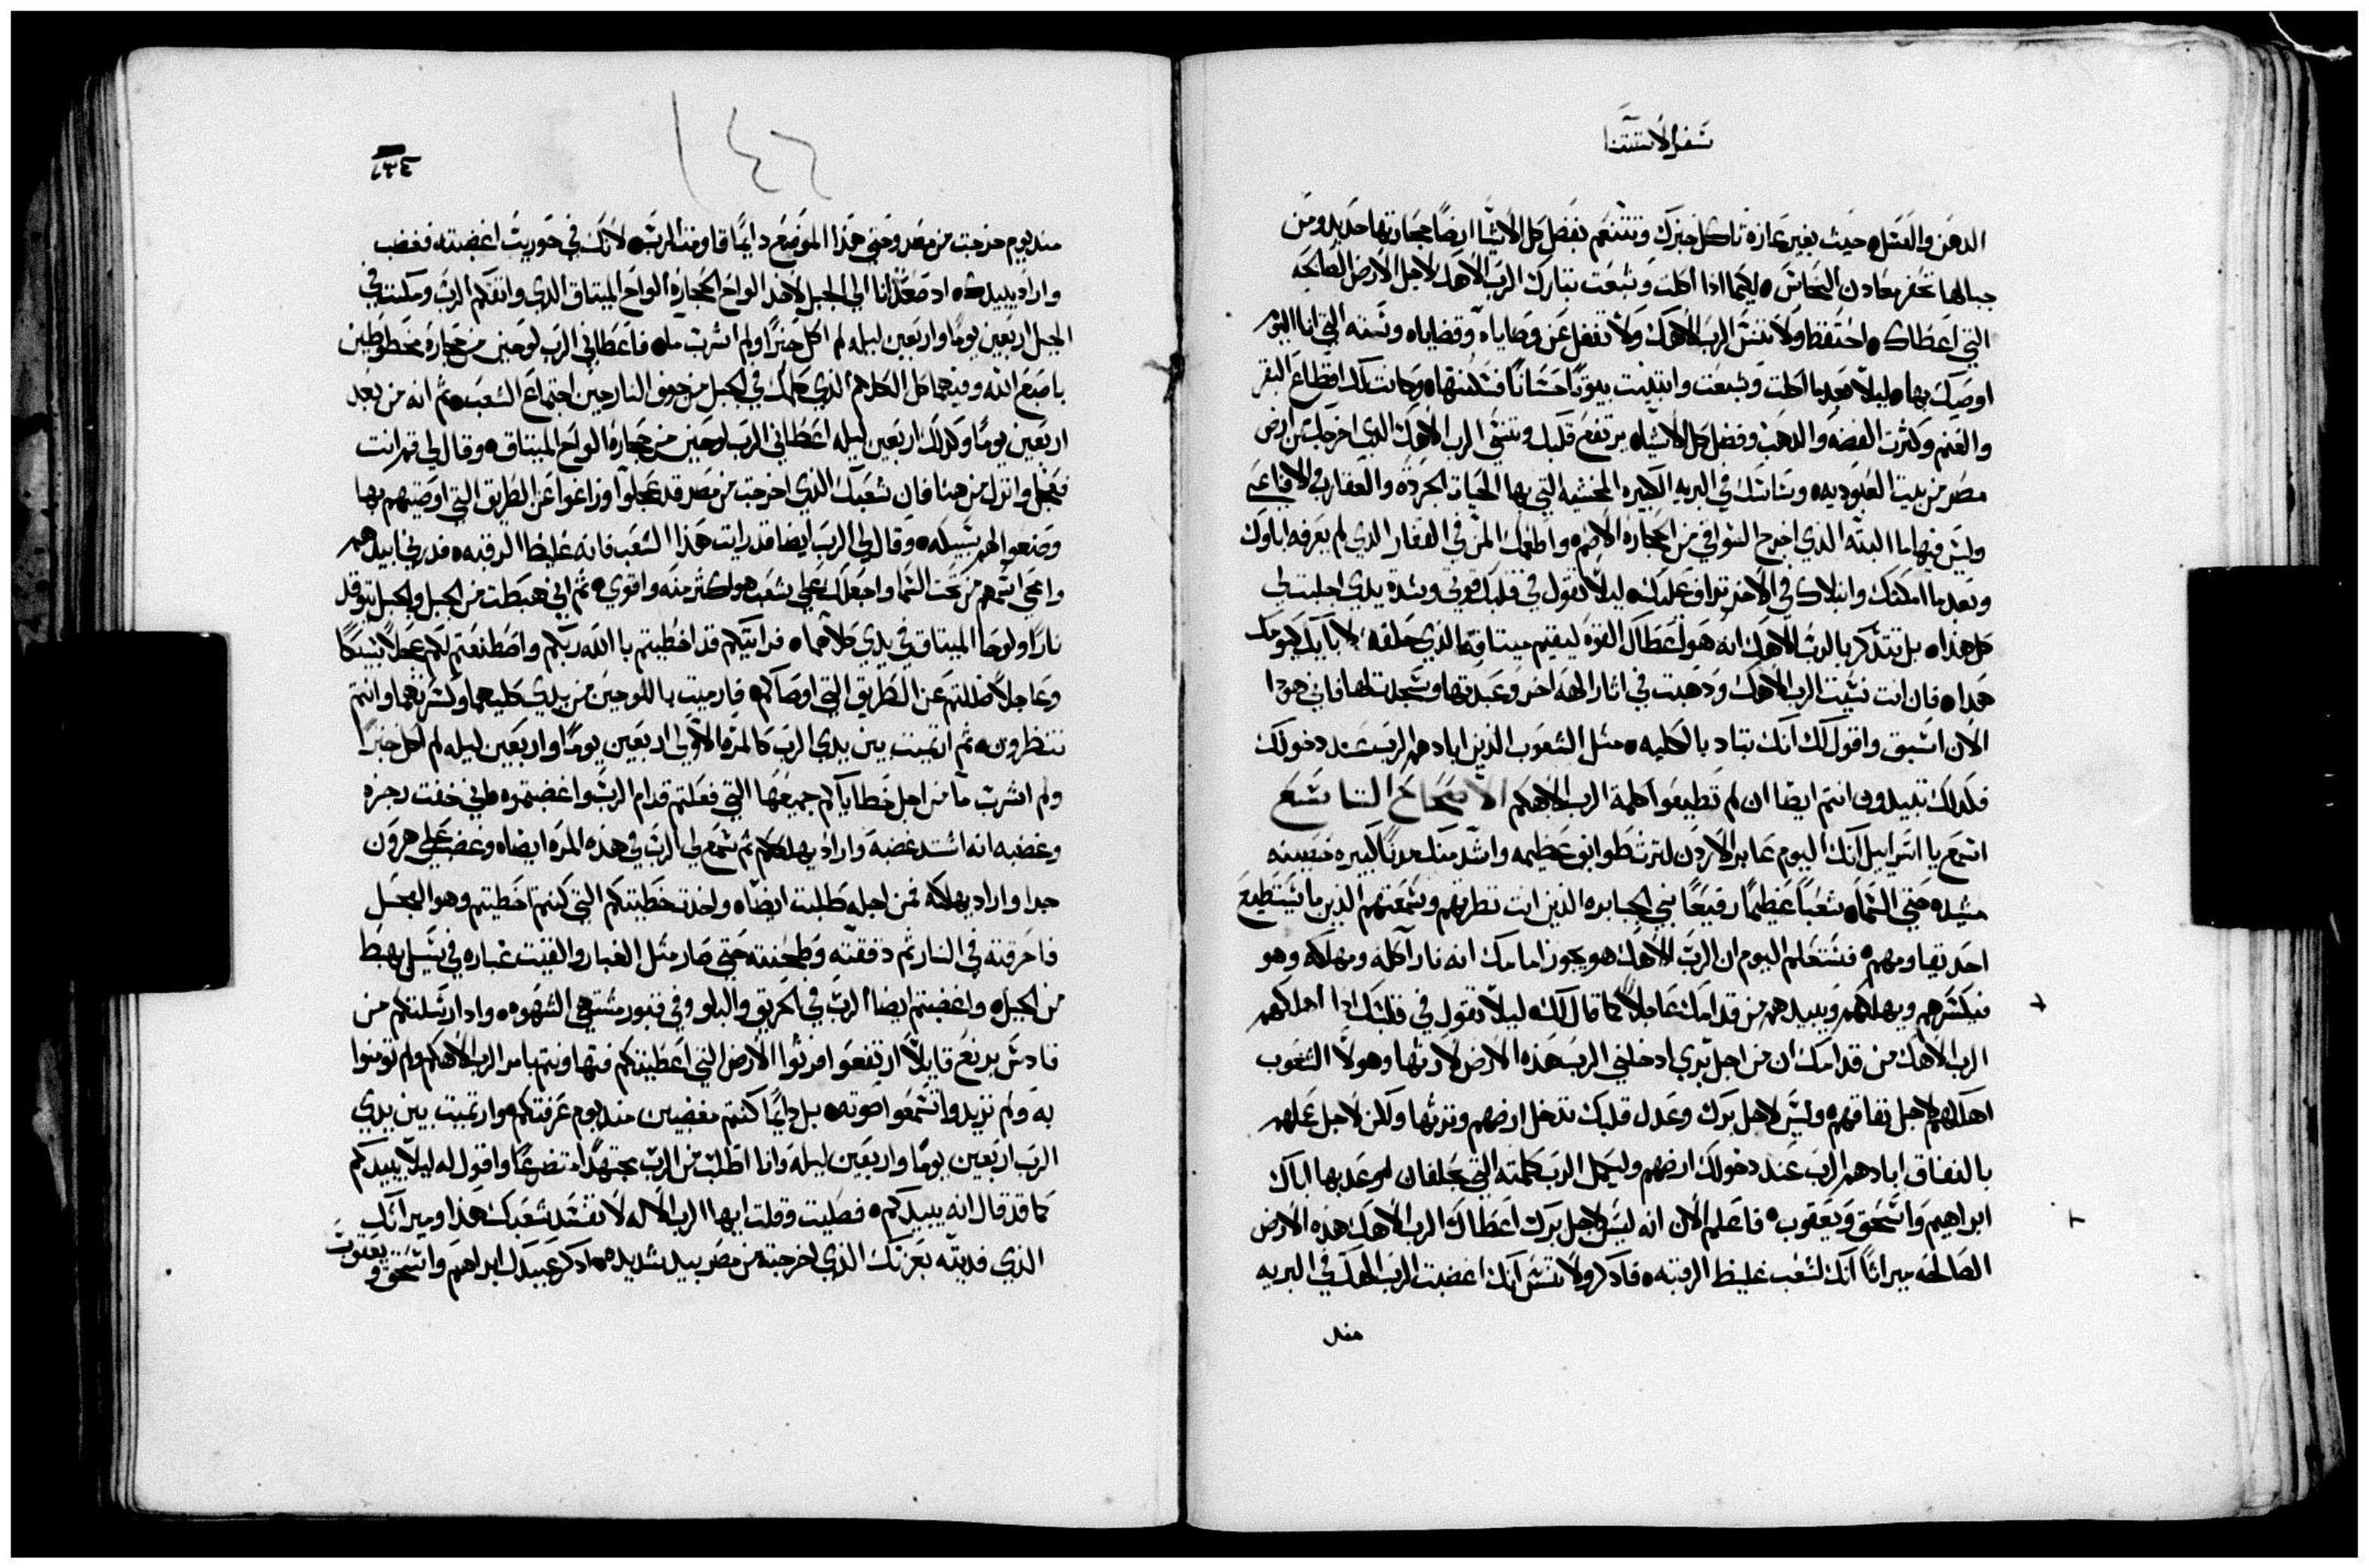 سفر الاستثنا
الدهن والعسل حيث بغير عازة تاكل خبزك وتتنعم بفضل كل الاشيا ايضًا حجارتها حديد ومن
جبالها تحفر معادن النحاس لكيما اذا اكلت وشبعت تبارك الرب الاهك لاجل الارض الصالحه
التي اعطاك احتفظ ولا تنسَ الرب الاهك ولا تغفل عن وصاياه وقضاياه وسننه التي انا اليوم
اوصيك بها ليلّا بعدما اكلت وشبعت وابتنيت بيوتًا حسانًا فسكنتها وكانت لك اقطاع البقر
والغنم وكثرت الفضه والدهب وفضل كل الاشياء يرتفع قلبك وتنسَى الرب الاهك الدي اخرجك من ارض
مصر من بيت العبوديه وساسك في البريه الكبيره المخشيه التي بها الحيات الحردة والعقارب والافاعي
وليس فيها ما البتّه الذي اخرج السواقي من الحجاره الاصم واطعمك المنّ في القفار الدي لم يعرفه اباوك
وبعدما امكنك وابتلاك في الاخر تراف عليك ليلّا تقول في قلبك قوتي وشدة يدي اجلبت لي
كل هذاه بل تتذكر بالرب الاهك انه هو اعطاك القوة ليقيم ميتاقه الذي حلفه لابايك كيومك
هداه فان انت نسيت الرب الاهك ودهبت في اثار الهه اخر وعبدتها وسجدت لها فاني هودا
الان اسبق واقول لك انك تباد بالكليه مثل الشعوب الذين ابادهم الرب عند دخولك
فلدلك تبيدون انتم ايضا ان لم تطيعوا كلمة الرب الاهكم الاصحاح التاسع
اسمع يا اسراييل انك اليوم عابر الاردن لترث طوايف عظيمه واشد منك مدنًا كبيره حصينه
مشيده حتى السماء شعبًا عظيمًا رفيعًا بني الجبابره الذين انت نظرتهم وسمعتهم الذين ما يستطيع
احد يقاومهم فستعلم اليوم ان الربَّ الاهك هو يجوز امامك انه نار آكله ومهلكه وهو
فيكسرهم ويهلكهم ويبيدهم من قدامك عاجلًا كما قال لك ليلّا تقول في قلبك ادا اهلكهم
الرب الاهك من قدامك ان من اجل بري ادخلني الرب هذه الارض لارثها وهولا الشعوب
اهلكهم لاجل نفاقهم وليس لاجل برك وعدل قلبك تدخل ارضهم وترثها ولكن لاجل عملهم
بالنفاق ابادهم الرب عند دخولك ارضهم وليكمل الرب كلمته التي بحلفان وعد بها اباك
ابراهيم واسحق ويعقوب فاعلم الان انه ليس لاجل برك اعطاك الرب الاهك هذه الارض
الصالحه ميراثًا انك لشعب غليظ الرقبه فادكر ولا تنسَ انك اغضبت الرب الهك في البريه
مند
١٤٦
١٣٤
مند يوم خرجت من مصر وحتى هذا الموضع دايمًا قاومت الرب لانك في حوريب اغضبته فغضب
واراد يبيدك اد صعدت انا الى الجبل لاخد الواح الحجاره الواح الميتاق الدي واثقكم الرب ومكثت في
الجبل اربعين يومًا واربعين ليله لم اكل خبزًا ولم اشرب ماء فاعطاني الرب لوحين من حجاره مخطوطين
باصبع الله وفيهما كل الكلام الذي كلمك في الجبل من جوف النار حين اجتماع الشعب ثم انه من بعد
اربعين يومًا وكدلك اربعين ليله اعطاني الرب لوحين من حجارة الواح الميتاق وقال لي قم انت
فعجل وانزل من هنا فان شعبك الذي اخرجت من مصر قد عجلوا وزاغوا عن الطريق التي اوصيتهم بها
وصنعوا لهم سبيكه وقال لي الرب ايضا قد رايت هذا الشعب فانه غليظ الرقبه فدرني ابيدهم
وامحي اسمهم من تحت السما واجعلك علي شعب هو اكثر منه واقوي ثم اني هبطت من الجبل والجبل يتوقد
نارًا ولوحا الميتاق في يدي كلاهما فرايتكم قد اخطيتم بالله ربكم واصطنعتم لكم عجلًا سبيكًا
وعاجلًا ضللتم عن الطريق التي اوصاكم فارميت باللوحين من يدي كليهما وكسرتهما وانتم
تنظرون ثم ارتميت بين يدي الرب كالمرّه الاولي اربعين يومًا واربعين ليله لم اكل خبزًا
ولم اشرب مآ من اجل خطاياكم جميعها التي فعلتم قدام الرب واغضبتموه فاني خفت رجزه
وغضبه انه اشتد غضبه واراد يهلككم ثم سمع لي الرب في هذه المره ايضاه وغضب علي هرون
جدا واراد يهلكه فمن اجله طلبت ايضاه واخدت خطيتكم التي كنتم اخطيتم وهو العجل
فاحرقته في النار ثم دققته وطحنته حتى صار مثل الغبار والقيت غباره في سيل يهبط
من الجبل واغضبتم ايضا الرب في الحريق والبلو وفي قبور مشتهي الشهوه واد ارسلتكم من
قادس برنع قايلًا ارتفعوا افرثوا الارض التي اعطيتكم فتهاونتم بامر الرب الاهكم ولم تومنوا
به ولم تريدوا تسمعوا صوته بل دايمًا كنتم مغضبين مند يوم عرفتكم وارتميت بين يدي
الرب اربعين يومًا واربعين ليله وانا اطلب من الرب مجتهدًا متضرعًا واقول له ليلّا يبيدكم
كما قد قال انه يبيدكم فصليت وقلت ايها الرب الاله لا تفسد شعبك هذا وميراثك
الذي فديته بعزتك الذي اخرجته من مصر بيد شديده ادكر عبيدك ابراهيم واسحق و
يعقوب